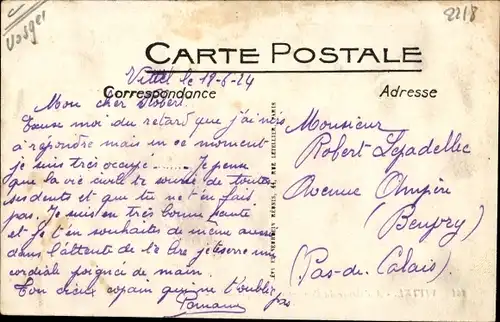 Vosges
2218
CARTE POSTALE
Correspondance
Adresse
Vittel le 19-6-24
Mon cher Robert.
Excuse moi du retard que j'ai mis
a repondre mais en se moment
je suis très occupé......... Je pense
que la vie civile te sourie de toutes
ses dents et que tu ne t'en fais
pas. Je suis en très bonne santé
et je t'en souhaites de même aussi
dans l'attente de te lire je te serre une
cordiale poignée de main.
Ton vieux copain qui ne t'oublie pas
Monsieur
Robert Lepadellec
Avenue Ampère
(Beuvry)
(Pas-de-Calais)